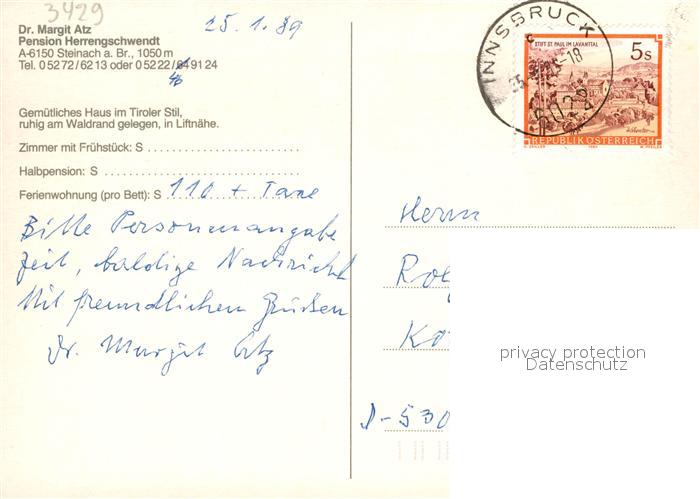 3429
25.1.89
Dr. Margit Atz
Pension Herrengschwendt
A-6150 Steinach a. Br., 1050 m
Tel. 0 52 72 / 62 13 oder 0 52 22 / 91 24
Gemütliches Haus im Tiroler Stil,
ruhig am Waldrand gelegen, in Liftnähe.
Zimmer mit Frühstück: S
Halbpension: S
Ferienwohnung (pro Bett): S 110 + Taxe
Bitte Personenangabe
Zeit, baldige Nachricht
Mit freundlichen Grüßen
Dr. Margit Atz
INNSBRUCK
STIFT ST. PAUL IM LAVANTTAL
5s
REPUBLIK ÖSTERREICH
Herrn
D-530
privacy protection
Datenschutz